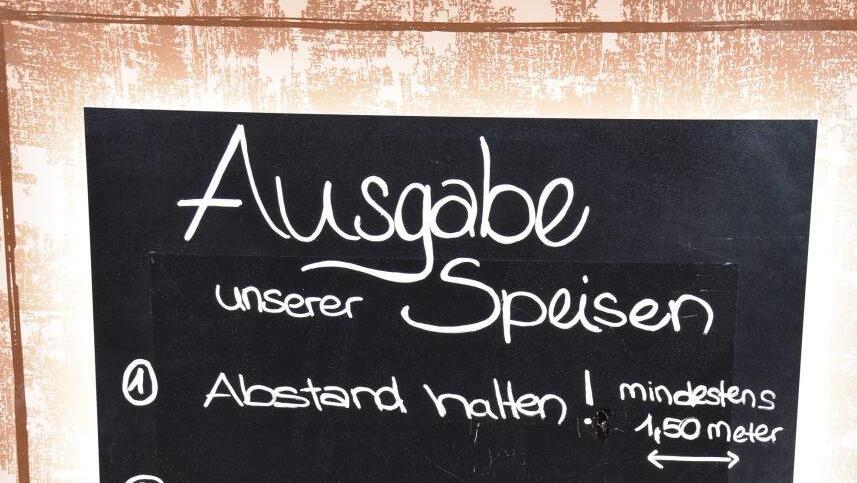 Ausgabe
unserer Speisen
① Abstand halten! mindestens
1,50 meter